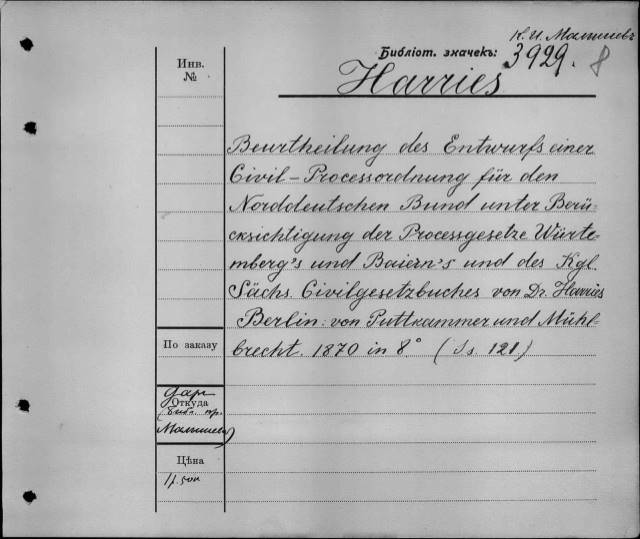 К. И. Малышевъ
Библіот. значекъ: 3929. 8
Инв.
№
Harries
Beurtheilung des Entwurfs einer
Civil-Processordnung für den
Norddeutschen Bund unter Berü-
cksichtigung der Processgesetze Württe-
mberg's und Baiern's und des Kgl.
Sächs. Civilgesetzbuches von Dr. Harries
Berlin: von Puttkammer und Mühl-
brecht. 1870 in 8° (Ss. 121.)
По заказу
Даръ
Откуда
Малышева)
Цѣна